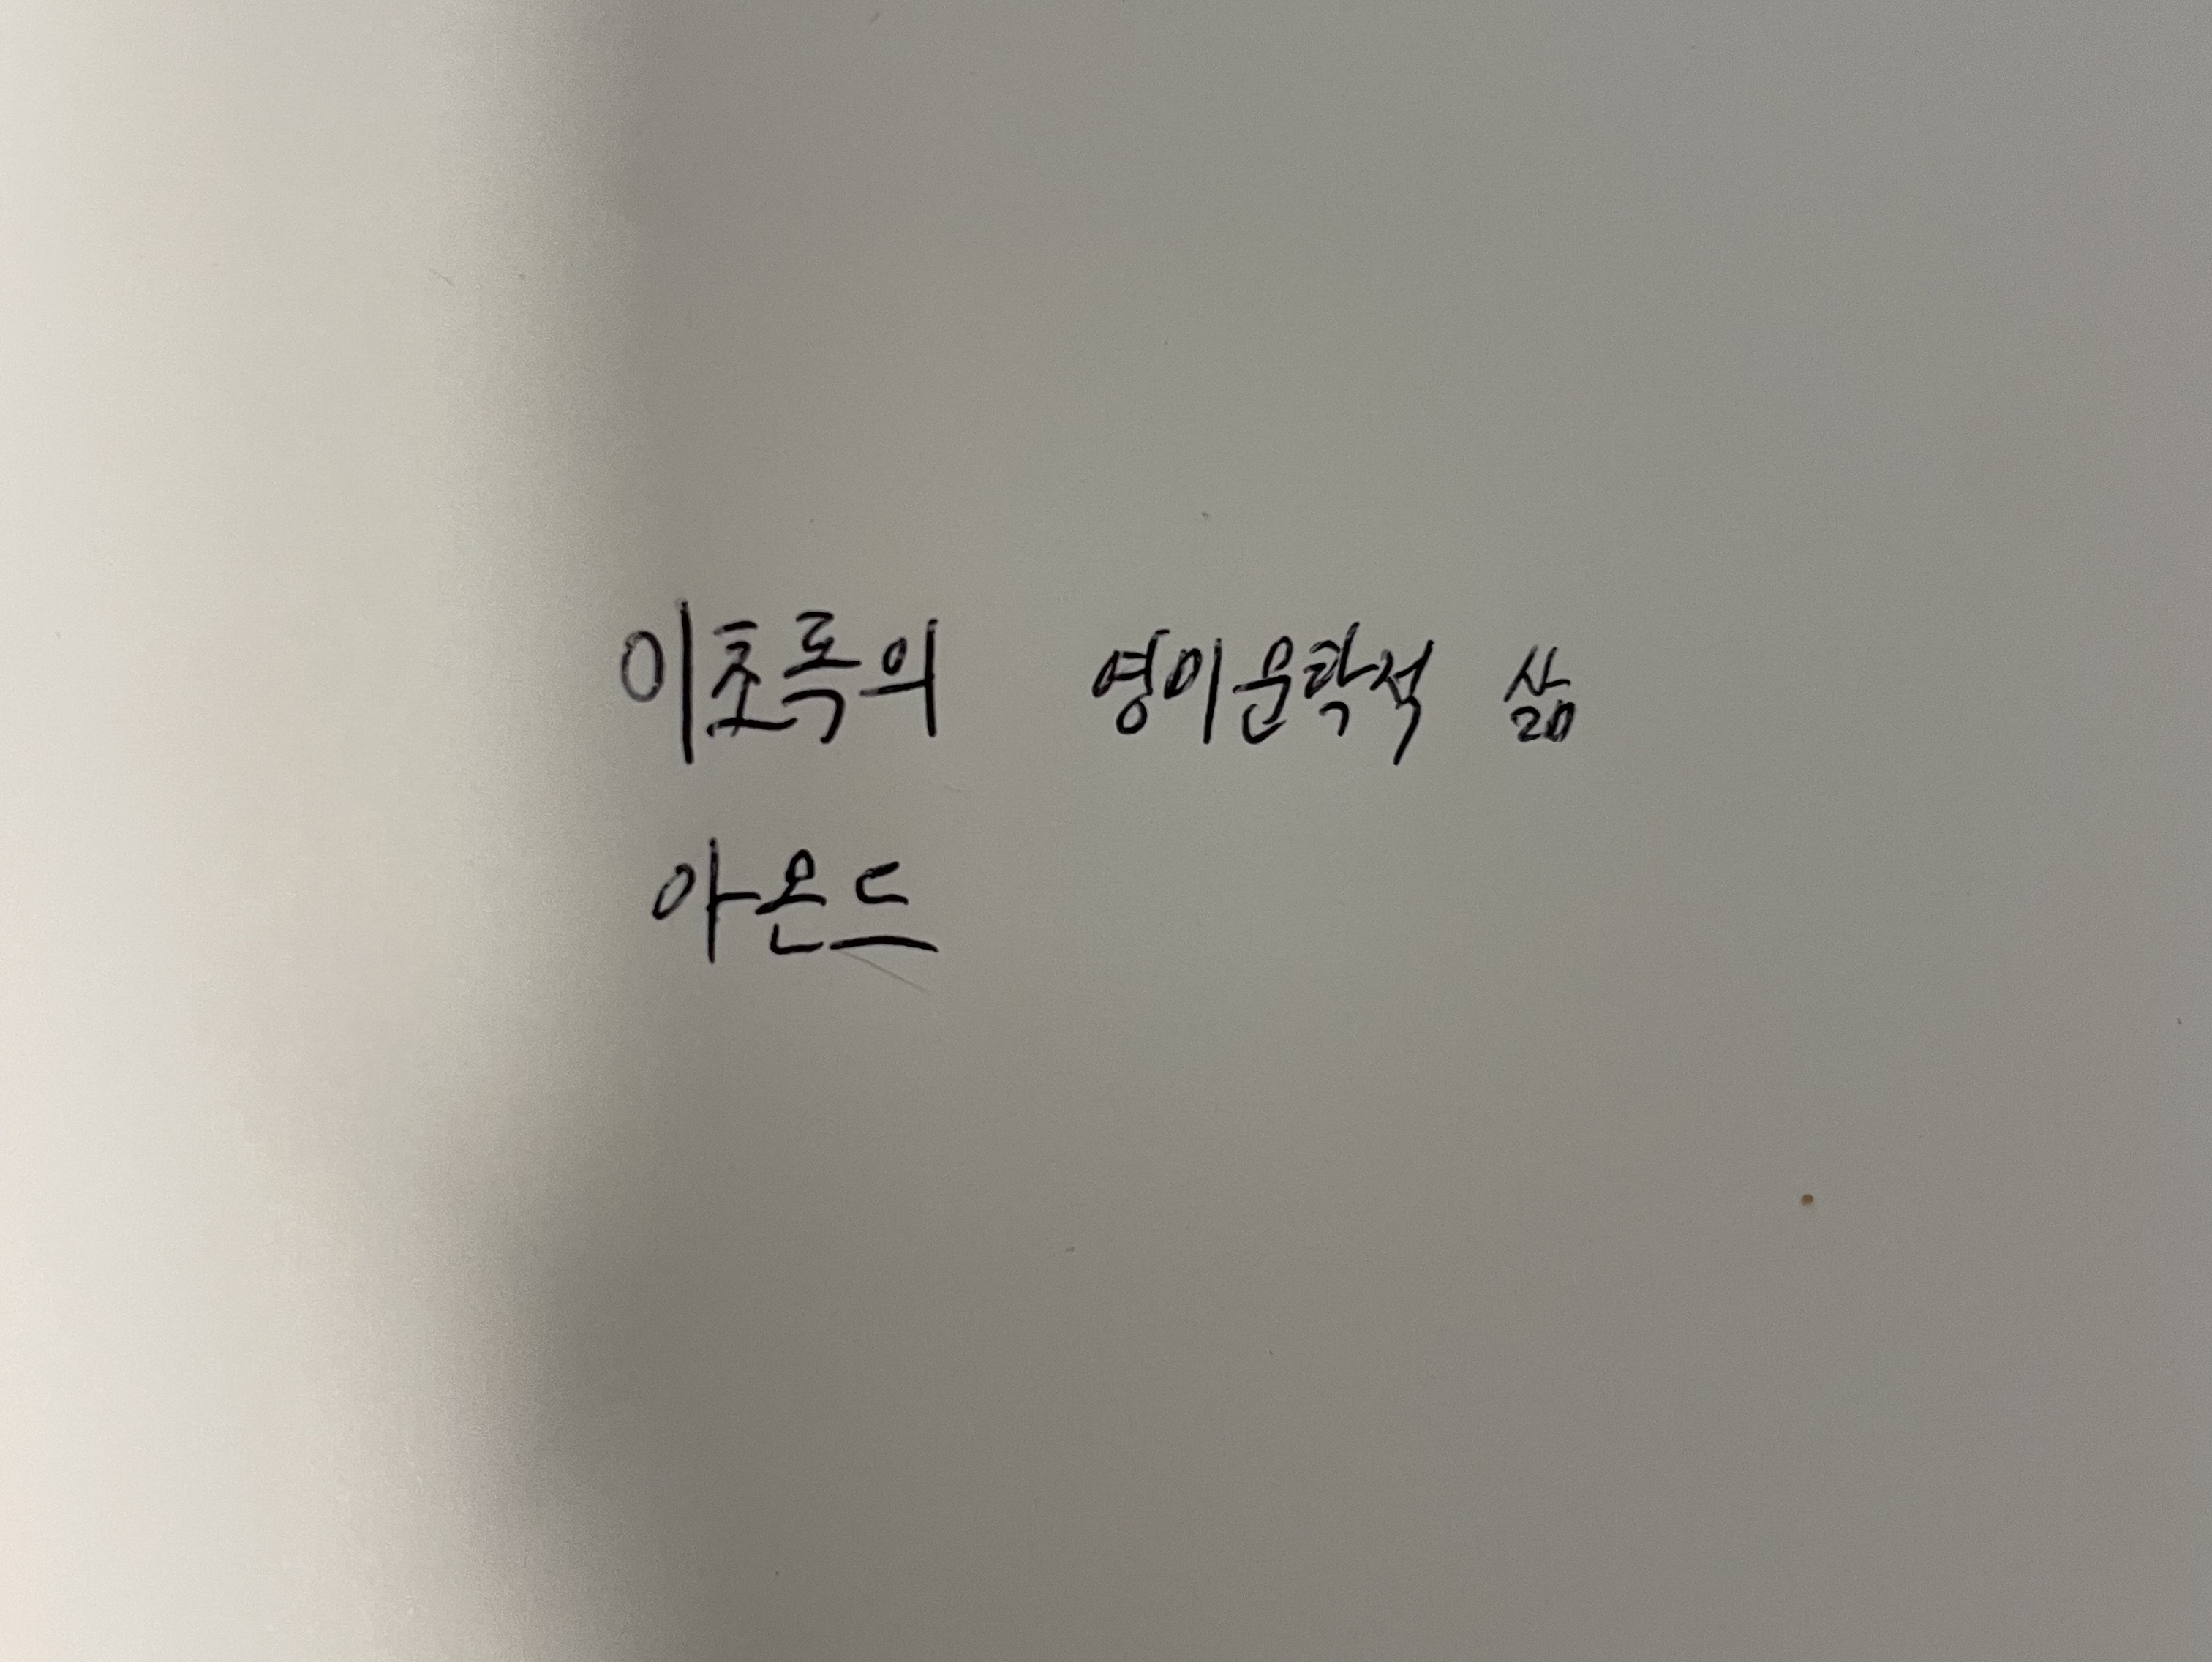 이초록의 영미문학적 삶
아몬드